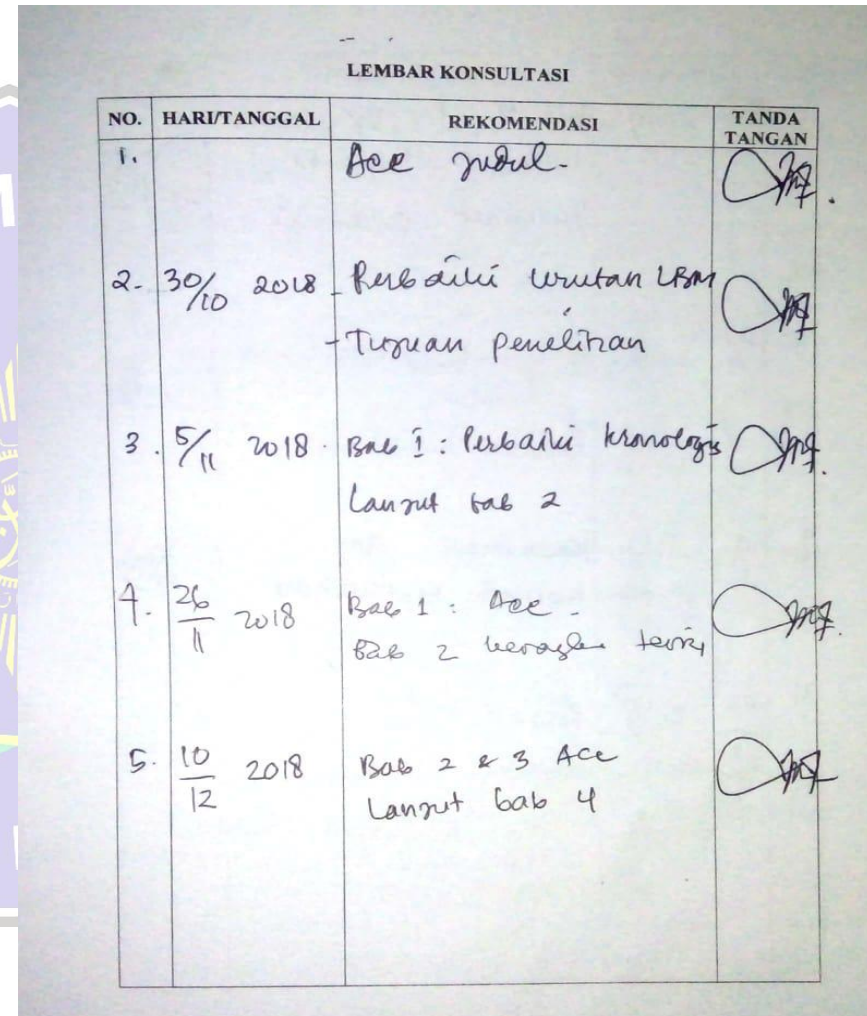 LEMBAR KONSULTASI
NO. HARI/TANGGAL REKOMENDASI TANDA TANGAN
1. Acc judul.
2. 30/10 2018 - Perbaiki urutan LBM
- Tujuan penelitian
3. 5/11 2018. Bab 1: Perbaiki kronologis
Lanjut bab 2
4. 26/11 2018 Bab 1: Acc.
Bab 2 teori
5. 10/12 2018 Bab 2 & 3 Acc
Lanjut bab 4